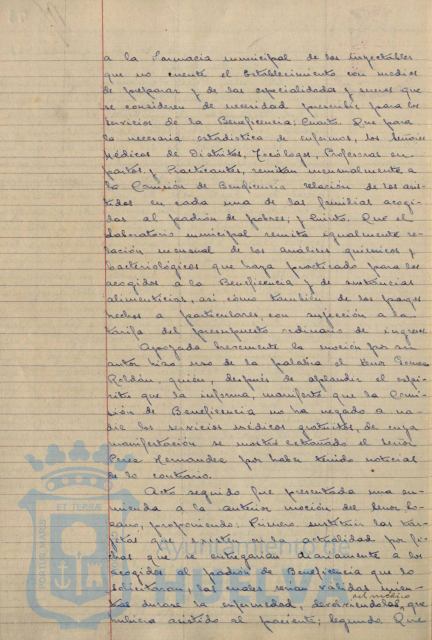 a la Farmacia municipal de los inyectables
que no cuente el Establecimiento con medios
de preparar y de las especialidades y sueros que
se consideren de necesidad prescribir para los
servicios de la Beneficencia; Cuarto. Que para
la necesaria estadística de enfermos, los Señores
Médicos de Distritos, Tocólogo, Profesoras en
partos y Practicantes, remitan mensualmente a
la Comisión de Beneficencia relación de los asis-
tidos en cada una de las familias acogi-
das al padrón de pobres; y Quinto. Que el
Laboratorio municipal remita igualmente re-
lación mensual de los análisis químicos y
bacteriológicos que haya practicado para los
acogidos a la Beneficencia y de sustancias
alimenticias, así como también de los pagos
hechos a particulares, con sujeción a la
tarifa del presupuesto ordinario de ingresos
Apoyada brevemente la moción por su
autor hizo uso de la palabra el Señor
Roldán, quién, después de aplaudir el espí-
ritu que la informa, manifestó que la Comi-
sión de Beneficencia no ha negado a na-
die los servicios médicos gratuitos, de cuya
manifestación se mostró extrañado el señor
Perez Hernandez por haber tenido noticias
de lo contrario.
Acto seguido fue presentada una en-
mienda a la anterior moción del Señor Lo-
zano, proponiendo: Primero sustituir las tar-
jetas que existen en la actualidad por fi-
chas que se entregarían diariamente a los
acogidos al padrón de Beneficencia que lo
solicitaran, las cuales serían válidas mien-
tras durase la enfermedad, devolviéndolas, que
del médico
hubiera asistido al paciente; segundo Que
PORTUS MARIS ET TERRAE
Ayuntamiento de
HUELVA